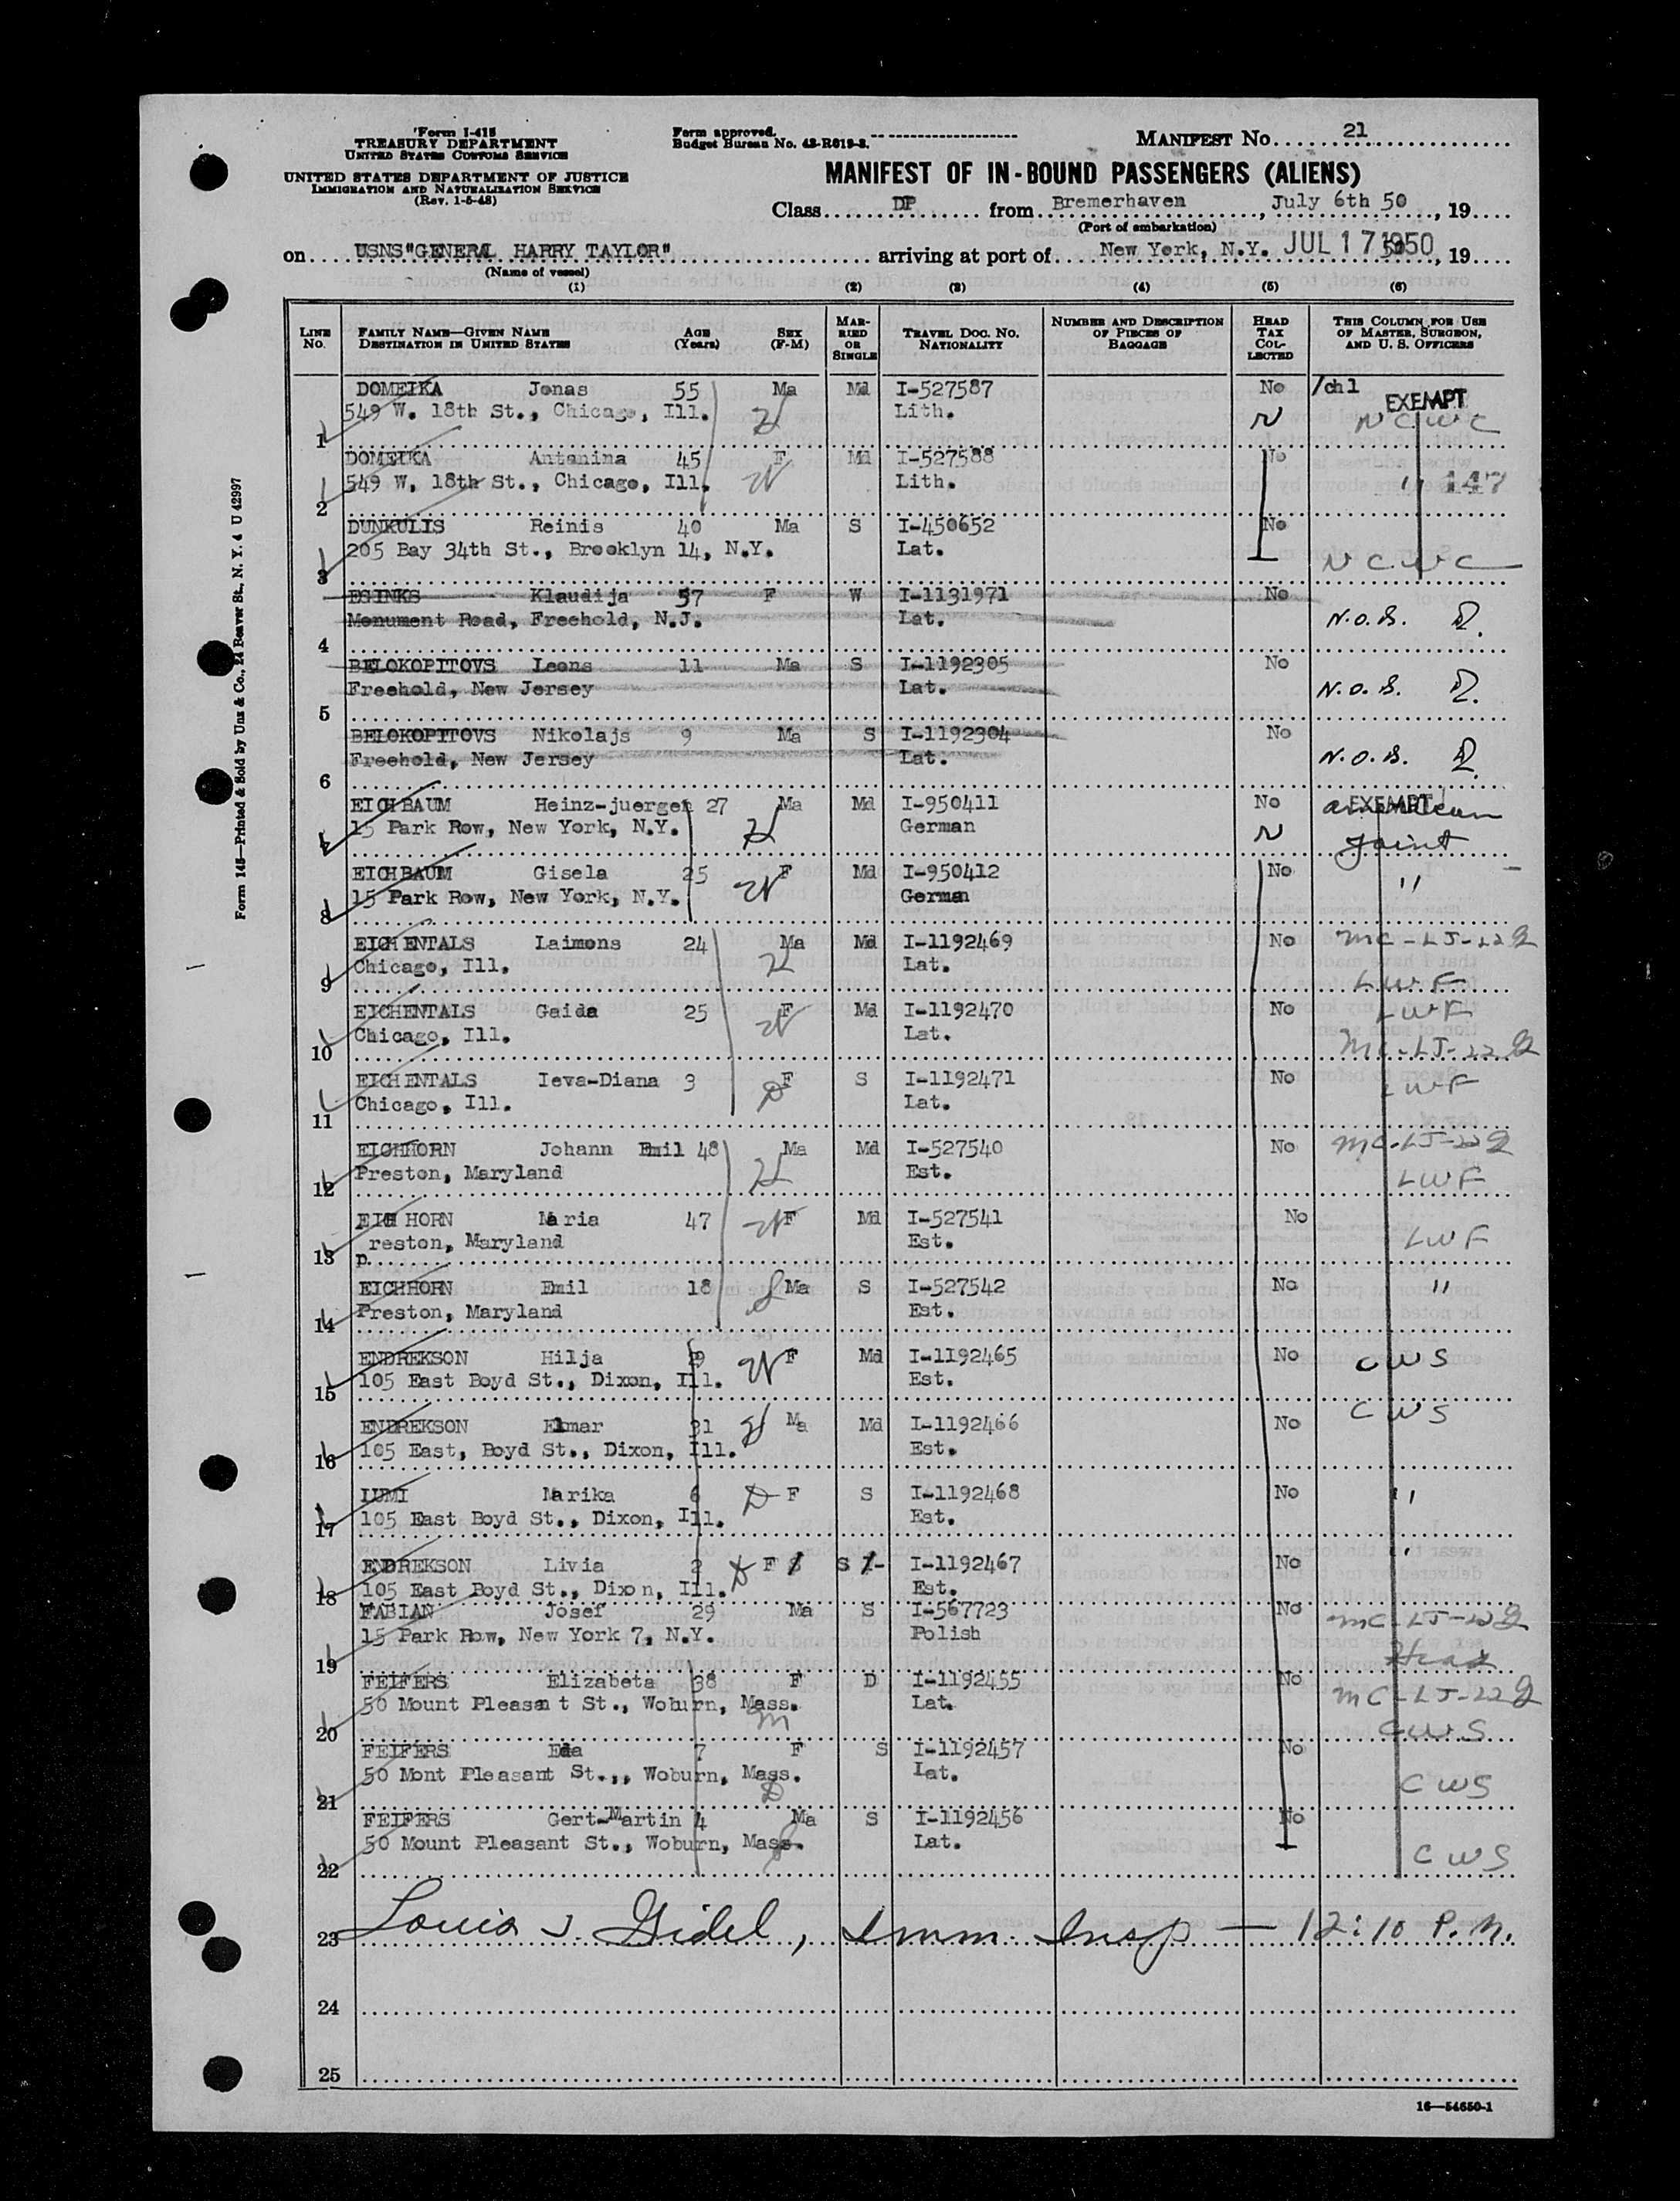 Form I-415
TREASURY DEPARTMENT
UNITED STATES CUSTOMS SERVICE
UNITED STATES DEPARTMENT OF JUSTICE
IMMIGRATION AND NATURALIZATION SERVICE
(Rev. 1-5-48)
Form approved.
Budget Bureau No. 43-R019-3.
MANIFEST No. 21
MANIFEST OF IN-BOUND PASSENGERS (ALIENS)
Class DP from Bremerhaven, July 6th 50, 19
(Port of embarkation)
on USNS"GENERAL HARRY TAYLOR" arriving at port of New York, N.Y. JUL 17 1950, 19
(Name of vessel)
(1) (2) (3) (4) (5) (6)
LINE No. FAMILY NAME—GIVEN NAME DESTINATION IN UNITED STATES AGE (Years) SEX (F-M) MARRIED OR SINGLE TRAVEL DOC. NO. NATIONALITY NUMBER AND DESCRIPTION OF PIECES OF BAGGAGE HEAD TAX COLLECTED THIS COLUMN FOR USE OF MASTER, SURGEON, AND U. S. OFFICERS
DOMEIKA Jonas 55 Ma Md I-527587 No /ch1 EXEMPT
1 549 W. 18th St., Chicago, Ill. H Lith. N NCWC
DOMEIKA Antonina 45 F Md I-527588 No
2 549 W. 18th St., Chicago, Ill. W Lith. " 147
DUNKULIS Reinis 40 Ma S I-450652 No
3 205 Bay 34th St., Brooklyn 14, N.Y. Lat. NCWC
ESINKS Klaudija 57 F W I-1131971 No
4 Monument Road, Freehold, N.J. Lat. N.O.B.
BELOKOPITOVS Leons 11 Ma S I-1192305 No
5 Freehold, New Jersey Lat. N.O.B.
BELOKOPITOVS Nikolajs 9 Ma S I-1192304 No
6 Freehold, New Jersey Lat. N.O.B.
EICHBAUM Heinz-juergen 27 Ma Md I-950411 No EXEMPT american
7 15 Park Row, New York, N.Y. H German N joint
EICHBAUM Gisela 25 F Md I-950412 No
8 15 Park Row, New York, N.Y. W German "
EICHENTALS Laimons 24 Ma Md I-1192469 No MC-LJ-22
9 Chicago, Ill. H Lat. LWF
EICHENTALS Gaida 25 F Md I-1192470 No LWF
10 Chicago, Ill. W Lat. MC-LJ-22
EICHENTALS Ieva-Diana 3 F S I-1192471 No
11 Chicago, Ill. D Lat. LWF
EICHHORN Johann Emil 48 Ma Md I-527540 No MC-LJ-22
12 Preston, Maryland H Est. LWF
EICHHORN Maria 47 W F Md I-527541 No
13 Preston, Maryland Est. LWF
EICHHORN Emil 18 S Ma S I-527542 No "
14 Preston, Maryland Est.
ENDREKSON Hilja 29 W F Md I-1192465 No CWS
15 105 East Boyd St., Dixon, Ill. Est.
ENDREKSON Elmar 31 H Ma Md I-1192466 No CWS
16 105 East, Boyd St., Dixon, Ill. Est.
LUMI Marika 6 D F S I-1192468 No "
17 105 East Boyd St., Dixon, Ill. Est.
ENDREKSON Livia 2 D F S I-1192467 No "
18 105 East Boyd St., Dixon, Ill. Est.
FABIAN Josef 29 Ma S I-567723 No MC-LJ-22
19 15 Park Row, New York 7, N.Y. Polish
FEIFERS Elizabeta 38 F D I-1192455 No MC-LJ-22
20 50 Mount Pleasant St., Woburn, Mass. m Lat. CWS
FEIFERS Eda 7 F S I-1192457 No
21 50 Mont Pleasant St.,, Woburn, Mass. D Lat. CWS
FEIFERS Gert-Martin 4 Ma S I-1192456 No
22 50 Mount Pleasant St., Woburn, Mass. Lat. CWS
23 Louis J. Gidel, Imm. Insp — 12:10 P.M.
24
25
16—54650-1
Form 145—Printed & Sold by Unz & Co., 24 Beaver St., N. Y. 4 U 42997